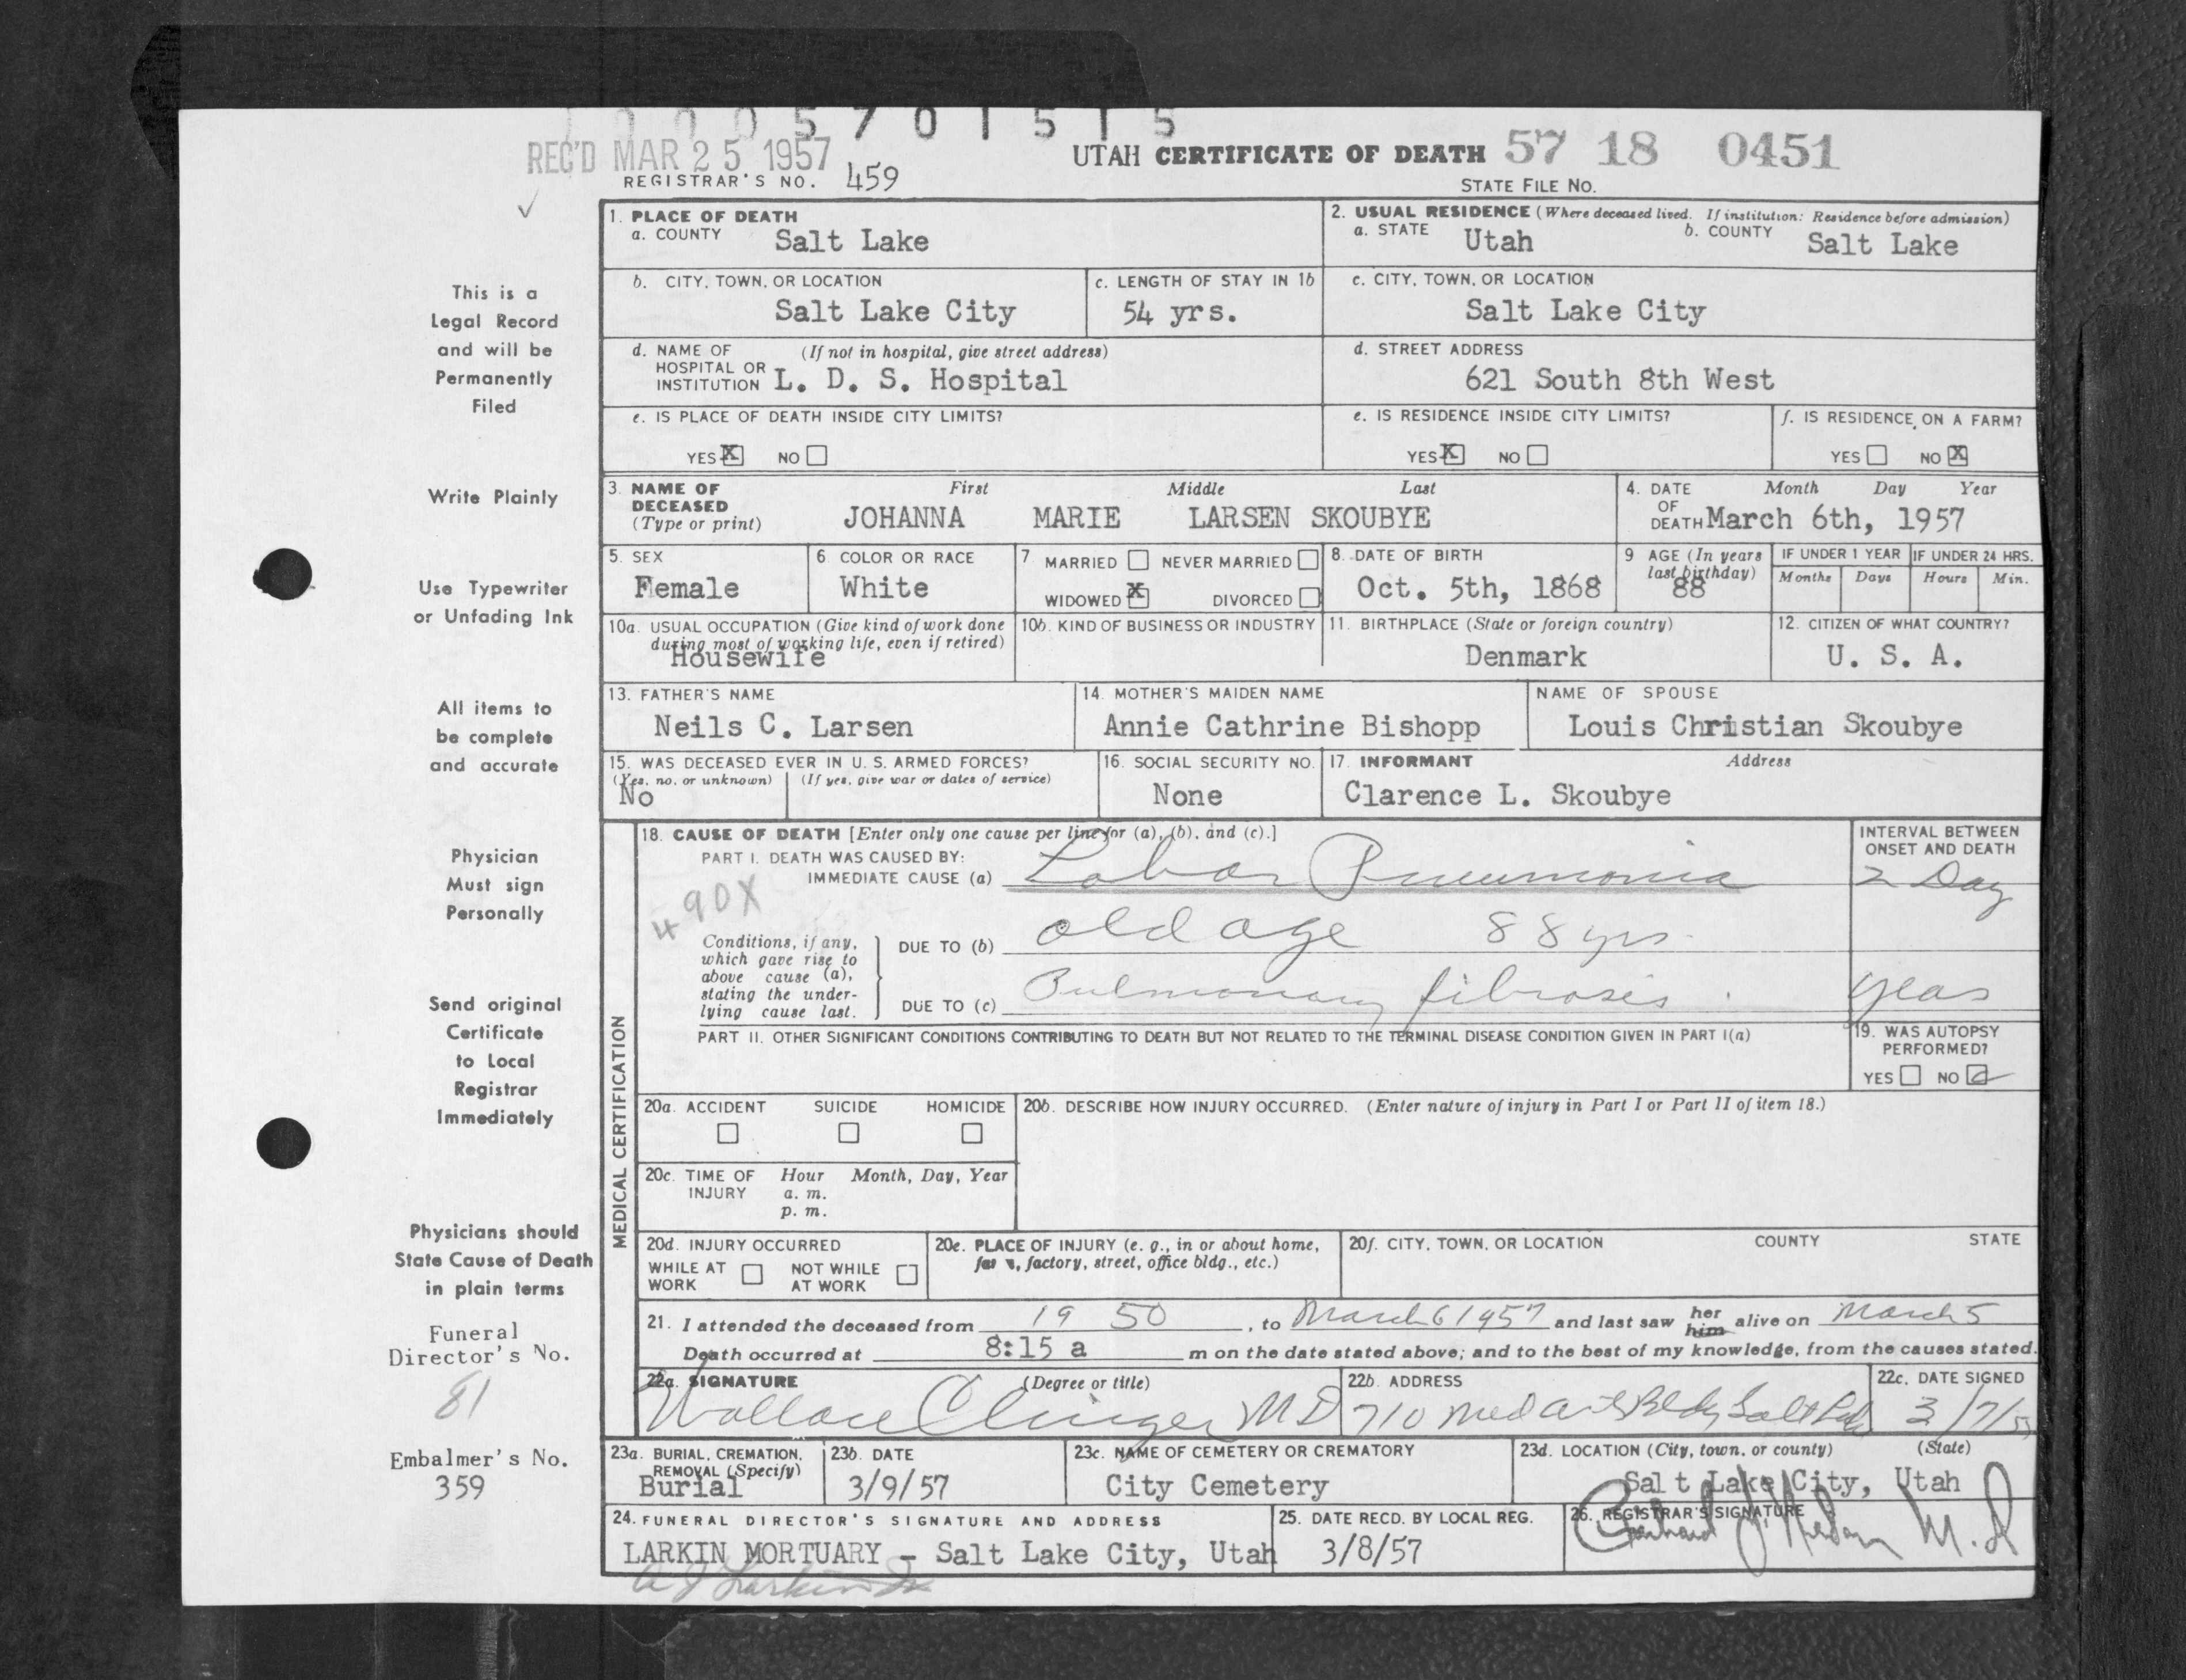 1 0 0 0 5 7 0 1 5 1 5
REC'D MAR 25 1957
UTAH CERTIFICATE OF DEATH 57 18 0451
REGISTRAR'S NO. 459
STATE FILE No.
This is a
Legal Record
and will be
Permanently
Filed
Write Plainly
Use Typewriter
or Unfading Ink
All items to
be complete
and accurate
Physician
Must sign
Personally
Send original
Certificate
to Local
Registrar
Immediately
Physicians should
State Cause of Death
in plain terms
Funeral
Director's No.
81
Embalmer's No.
359
1. PLACE OF DEATH
a. COUNTY Salt Lake
2. USUAL RESIDENCE (Where deceased lived. If institution: Residence before admission)
a. STATE Utah b. COUNTY Salt Lake
b. CITY, TOWN, OR LOCATION
Salt Lake City
c. LENGTH OF STAY IN 1b
54 yrs.
c. CITY, TOWN, OR LOCATION
Salt Lake City
d. NAME OF (If not in hospital, give street address)
HOSPITAL OR
INSTITUTION L. D. S. Hospital
d. STREET ADDRESS
621 South 8th West
e. IS PLACE OF DEATH INSIDE CITY LIMITS?
YES X NO
e. IS RESIDENCE INSIDE CITY LIMITS?
YES X NO
f. IS RESIDENCE ON A FARM?
YES NO X
3. NAME OF First Middle Last
DECEASED
(Type or print) JOHANNA MARIE LARSEN SKOUBYE
4. DATE Month Day Year
OF
DEATH March 6th, 1957
5. SEX
Female
6. COLOR OR RACE
White
7 MARRIED NEVER MARRIED
WIDOWED X DIVORCED
8. DATE OF BIRTH
Oct. 5th, 1868
9 AGE (In years
last birthday)
88
IF UNDER 1 YEAR IF UNDER 24 HRS.
Months Days Hours Min.
10a. USUAL OCCUPATION (Give kind of work done
during most of working life, even if retired)
Housewife
10b. KIND OF BUSINESS OR INDUSTRY
11. BIRTHPLACE (State or foreign country)
Denmark
12. CITIZEN OF WHAT COUNTRY?
U. S. A.
13. FATHER'S NAME
Neils C. Larsen
14. MOTHER'S MAIDEN NAME
Annie Cathrine Bishopp
NAME OF SPOUSE
Louis Christian Skoubye
15. WAS DECEASED EVER IN U. S. ARMED FORCES?
(Yes, no, or unknown) (If yes, give war or dates of service)
No
16. SOCIAL SECURITY NO.
None
17. INFORMANT Address
Clarence L. Skoubye
MEDICAL CERTIFICATION
18. CAUSE OF DEATH [Enter only one cause per line for (a), (b), and (c).]
PART I. DEATH WAS CAUSED BY:
IMMEDIATE CAUSE (a) Lobar Pneumonia
INTERVAL BETWEEN
ONSET AND DEATH
2 Day
490X
Conditions, if any,
which gave rise to
above cause (a),
stating the under-
lying cause last.
DUE TO (b) old age 88 yrs.
DUE TO (c) Pulmonary fibrosis. years
PART II. OTHER SIGNIFICANT CONDITIONS CONTRIBUTING TO DEATH BUT NOT RELATED TO THE TERMINAL DISEASE CONDITION GIVEN IN PART I(a)
19. WAS AUTOPSY
PERFORMED?
YES NO
20a. ACCIDENT SUICIDE HOMICIDE
20b. DESCRIBE HOW INJURY OCCURRED. (Enter nature of injury in Part I or Part II of item 18.)
20c. TIME OF Hour Month, Day, Year
INJURY a. m.
p. m.
20d. INJURY OCCURRED
WHILE AT NOT WHILE
WORK AT WORK
20e. PLACE OF INJURY (e. g., in or about home,
farm, factory, street, office bldg., etc.)
20f. CITY, TOWN, OR LOCATION COUNTY STATE
21. I attended the deceased from 19 50, to March 6 1957 and last saw her him alive on March 5
Death occurred at 8:15 a m on the date stated above; and to the best of my knowledge, from the causes stated.
22a. SIGNATURE (Degree or title)
Wallace Clinger MD
22b. ADDRESS
710 Med Arts Bldg Salt Lake
22c. DATE SIGNED
3/7/57
23a. BURIAL, CREMATION,
REMOVAL (Specify)
Burial
23b. DATE
3/9/57
23c. NAME OF CEMETERY OR CREMATORY
City Cemetery
23d. LOCATION (City, town, or county) (State)
Salt Lake City, Utah
24. FUNERAL DIRECTOR'S SIGNATURE AND ADDRESS
LARKIN MORTUARY - Salt Lake City, Utah
25. DATE RECD. BY LOCAL REG.
3/8/57
26. REGISTRAR'S SIGNATURE
M. D.